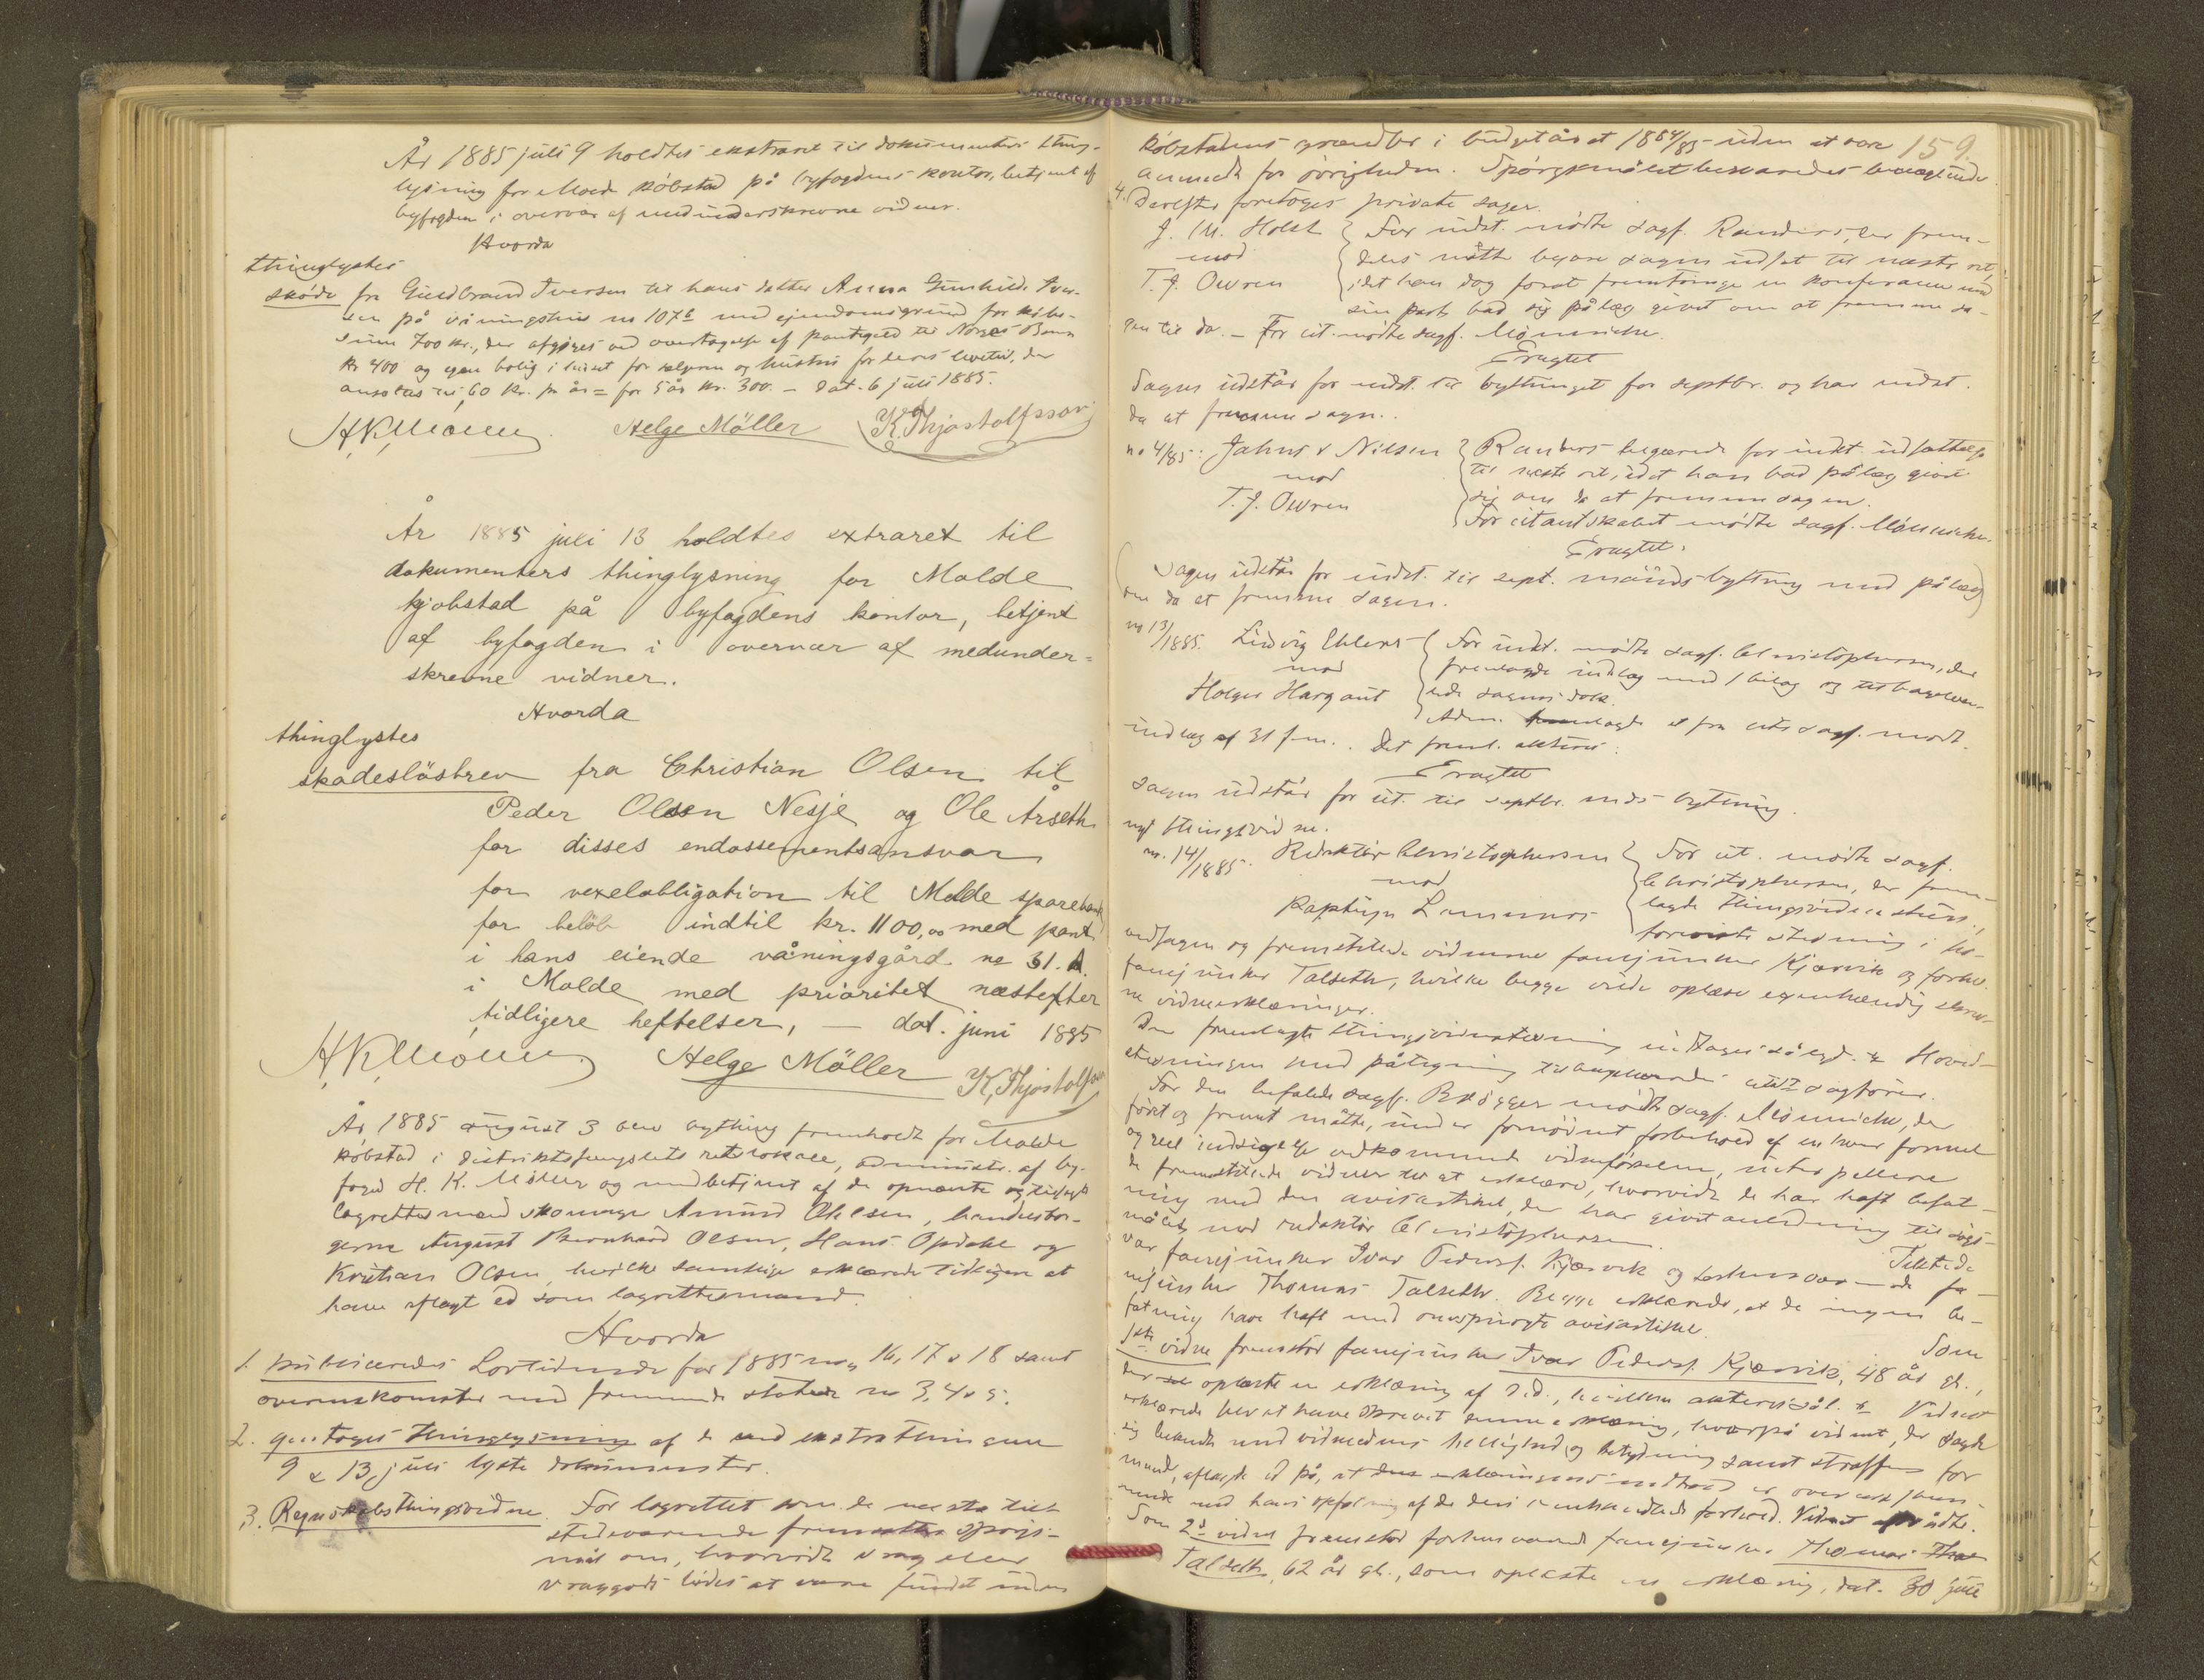 År 1885 juli 9 holdtes ekstraret til dokumenters thing-
lysning for Molde købstad på byfogdens kontor, betjent af
byfogden i overvær af medunderskrevne vidner.
Hvorda
thinglystes
skøde fra Guldbrand Iversen til hans datter Anna Gunhilde Iver-
sen på våningshus no 107b med ejendomsgrund for købe-
sum 700 kr., der afgjøres ved overtagelse af pantegæld til Norges Bank
kr 400 og egen bolig i huset for sælgeren og hustru for deres levetid, der
ansættes til 60 kr. pr år = for 5 år kr. 300. – dat. 6 juli 1885.
H.K. Møller Helge Möller K. Thjostolfsson
År 1885 juli 13 holdtes extraret til
dokumenters thinglysning for Molde
kjøbstad på byfogdens kontor, betjent
af byfogden i overvær af medunder=
skrevne vidner.
Hvorda
thinglystes
skadesløsbrev fra Christian Olsen til
Peder Olsen Nesje og Ole Årseth
for disses endossementsansvar
for vexelobligation til Molde sparebank
for beløb indtil kr. 1100,00 med pant
i hans eiende våningsgård no 31. A.
i Molde med prioritet næstefter
tidligere heftelser, – dat. juni 1885
H.K. Møller Helge Möller K. Thjostolfsson
År 1885 august 3 blev bything fremholdt for Molde
købstad i distriktsfængslets retslokale, administr. af by-
foged H. K. Møller og medbetjent af de opnævnte og tilsagte
lagrettesmænd skomager Amund Olelsen, handelsbor-
gerne August Bernhard Olsen, Hans Opdahl og
Kristian Olsen, hvilke samtlige erklærede tidligere at
have aflagt ed som lagrettesmænd.
Hvorda
1. publiceredes Lovtidende for 1885 no 16, 17 & 18 samt
overenskomster med fremmede stater no 3, 4 & 5.
2. gentoges thinglysning af de ved ekstrathingene
9 & 13 juli lyste dokumenter.
3. Regnskabsthingsvidne. For lagrettet som de næste til
stedeværende fremsattes spørgs-
mål om, hvorvidt vrag eller
vraggods vides at være fundet inden
købstadens grændser i budgetåret 1884/85 uden at være 159.
anmeldt for øvrigheden. Spørgsmålet besvaredes benægtende.
4. Derefter foretoges private sager.
J. M. Holst
mod
T. J. Owren
For indst. mødte sagf. Randers, der frem-
deles måtte begære sagen udsat til næste ret,
idet han dog forat fremtvinge en konferance med
sin part bad sig pålæg givet om at fremme sa-
gen til da. – For cit. mødte sagf. Mönniche.
Eragtet
Sagen udstår for indst. til bythinget for septbr. og har indst.
da at fremme sagen.
no 4/85: Jahns & Nilsen
mod
T. J. Owren
Randers begærede for indst. udsættelse
til næste ret, idet han bad pålæg givet
sig om da at fremme sagen.
For citantskabet mødte sagf. Mönniche.
Eragtet.
Sagen udstår for indst. til sept. måneds bything med pålæg
om da at fremme sagen.
no 13/1885. Ludvig Ehlers
mod
Holger Hargaut
For indst. mødte sagf. Christophersen, der
fremlagde indlæg med 1 bilag og tilbageleve-
rede sagens dok.
Adm. fremlagde et fra cits sagf. modt.
indlæg af 31 f.m. Det freml. akteres:
Eragtet
Sagen udstår for cit. til septbr. mds bything.
nyt thingsvidne.
no. 14/1885. Redaktør Christophersen
mod
Kaptejn Lummers
For cit. mødte sagf.
Christophersen, der frem-
lagde thingsvidnestevn.,
foreviste stevning i ho-
vedsagen og fremstillede vidnerne fanejunker Kjørsvik og forhv.
fanejunker Talseth, hvilke begge vilde oplæse egenhændig skrev-
ne vidneerklæringer.
Den fremlagte thingsvidnestevning indtages sålyd. & Hoved-
stevningen med påtegning tilbageleveredes cits sagfører.
For den befalede sagf. Brøgger mødte sagf. Mönniche, der
først og fremst måtte, under fornødent forbehold af enhver formel
og reel indsigelse vedkommende vidneførselen, interpellere
de fremstillede vidner til at erklære, hvorvidt de har haft befat-
ning med den avisartikel, der har givet anledning til søgs-
målet mod redaktør Christophersen. Tilstede
var fanejunker Ivar Peders. Kjørsvik og forhenvær – de fa-
nejunker Thomas Talseth. Begge erklærede, at de ingen be-
fatning have haft med omspurgte avisartikel. Som
1ste vidne fremstod fanejunker Ivar Peders. Kjørsvik, 48 år gl.,
der oplæste en erklæring af d.d., hvilken akteres sål. & Vidnet
erklærede selv at have skrevet denne erklæring, hvorpå vidnet, der sagde
sig bekendt med vidneedens hellighed og betydning samt straffen for
mened, aflagde ed på, at erklæringens indhold er overensstem-
mende med hans opfatning af de deri omhandlede forhold. Vidnet aftrådte.
Som 2d vidne fremstod forhenværende fanejunker Thomas
Talseth, 62 år gl., som oplæste en erklæring, dat. 30 juli